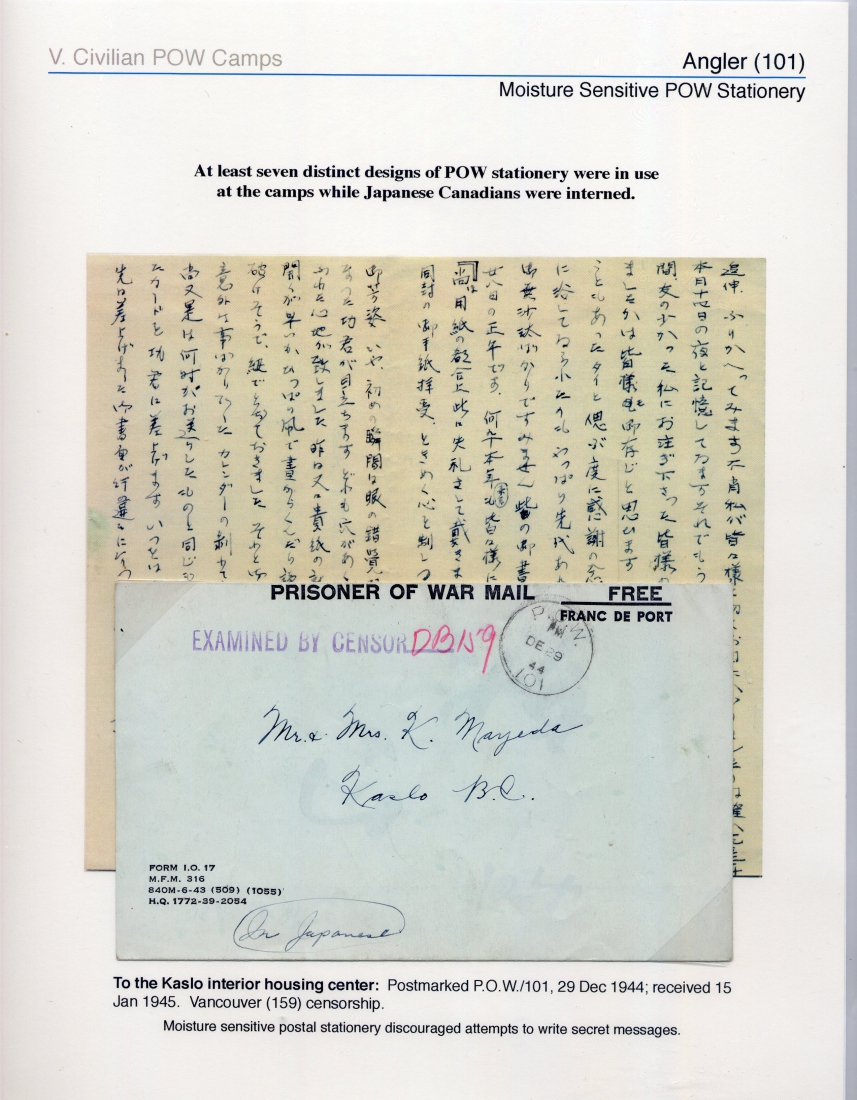 V. Civilian POW Camps
Angler (101)
Moisture Sensitive POW Stationery
At least seven distinct designs of POW stationery were in use
at the camps while Japanese Canadians were interned.
追伸、ふりかへってみます 私が皆々様
本月十 日の夜と記憶してゐますそれでもう
間、友の少かった私にお注ぎ下さった皆様の
ましたかは皆様も御存じと思ひます
こともあった と偲ぶ度に感謝の念
に浴して やっぱり先代
御無沙汰ばかりですみません 此の御書
廿八日の正午です。何卒本年も皆々様に
尚、用紙の都合上此に失礼さして戴きま
同封の御手紙拝受、ときめく心を制しつ
御芳姿 いや、初めの瞬間は眼の錯覚
なった功君が目立ちます どれも穴があく
ふれた心地が致しました 昨日又貴紙の
聞くが早いかひっぱり凧で
破けそうで、 ておきました
意外な事ばかりでした カレンダーの剥
尚又是は何時かお送りしたものと同じ
たカードを功君に差上げます いつとは
先に差上げました御書面が
PRISONER OF WAR MAIL
FREE
FRANC DE PORT
EXAMINED BY CENSOR DB/159
P.O.W.
PM
DE 29
44
101
Mr. & Mrs. K. Mayeda
Kaslo B.C.
FORM I.O. 17
M.F.M. 316
840M-6-43 (509) (1055)
H.Q. 1772-39-2054
In Japanese
To the Kaslo interior housing center: Postmarked P.O.W./101, 29 Dec 1944; received 15
Jan 1945. Vancouver (159) censorship.
Moisture sensitive postal stationery discouraged attempts to write secret messages.